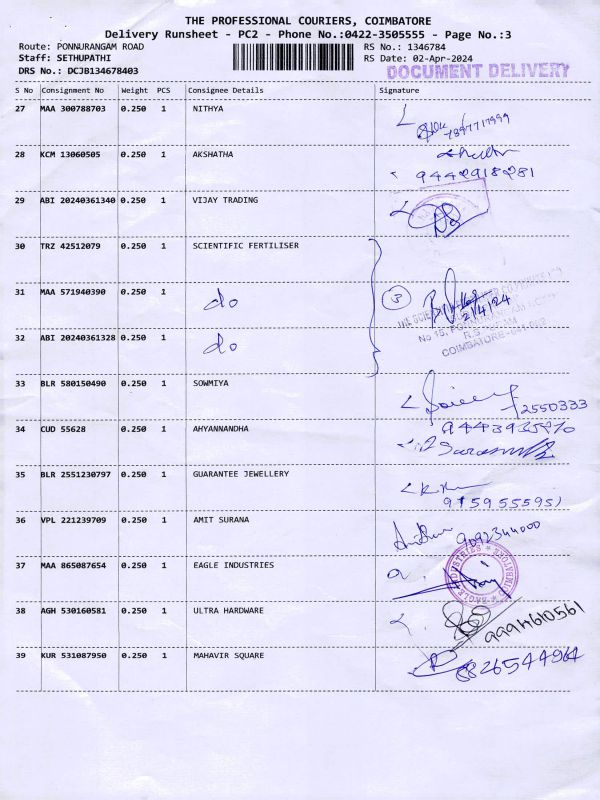 THE PROFESSIONAL COURIERS, COIMBATORE
Delivery Runsheet - PC2 - Phone No.:0422-3505555 - Page No.:3
Route: PONNURANGAM ROAD
RS No.: 1346784
Staff: SETHUPATHI
RS Date: 02-Apr-2024
DRS No.: DCJB134678403
DOCUMENT DELIVERY
S No Consignment No Weight PCS Consignee Details Signature
27 MAA 300788703 0.250 1 NITHYA
28 KCM 13060505 0.250 1 AKSHATHA
9442918281
29 ABI 20240361340 0.250 1 VIJAY TRADING
30 TRZ 42512079 0.250 1 SCIENTIFIC FERTILISER
31 MAA 571940390 0.250 1 do
3
2/4/24
32 ABI 20240361328 0.250 1 do
COIMBATORE
33 BLR 580150490 0.250 1 SOWMIYA
2550333
34 CUD 55628 0.250 1 AHYANNANDHA
35 BLR 2551230797 0.250 1 GUARANTEE JEWELLERY
9159555951
36 VPL 221239709 0.250 1 AMIT SURANA
9092344000
37 MAA 865087654 0.250 1 EAGLE INDUSTRIES
EAGLE INDUSTRIES
38 AGH 530160581 0.250 1 ULTRA HARDWARE
9994610561
39 KUR 531087950 0.250 1 MAHAVIR SQUARE
8826544964